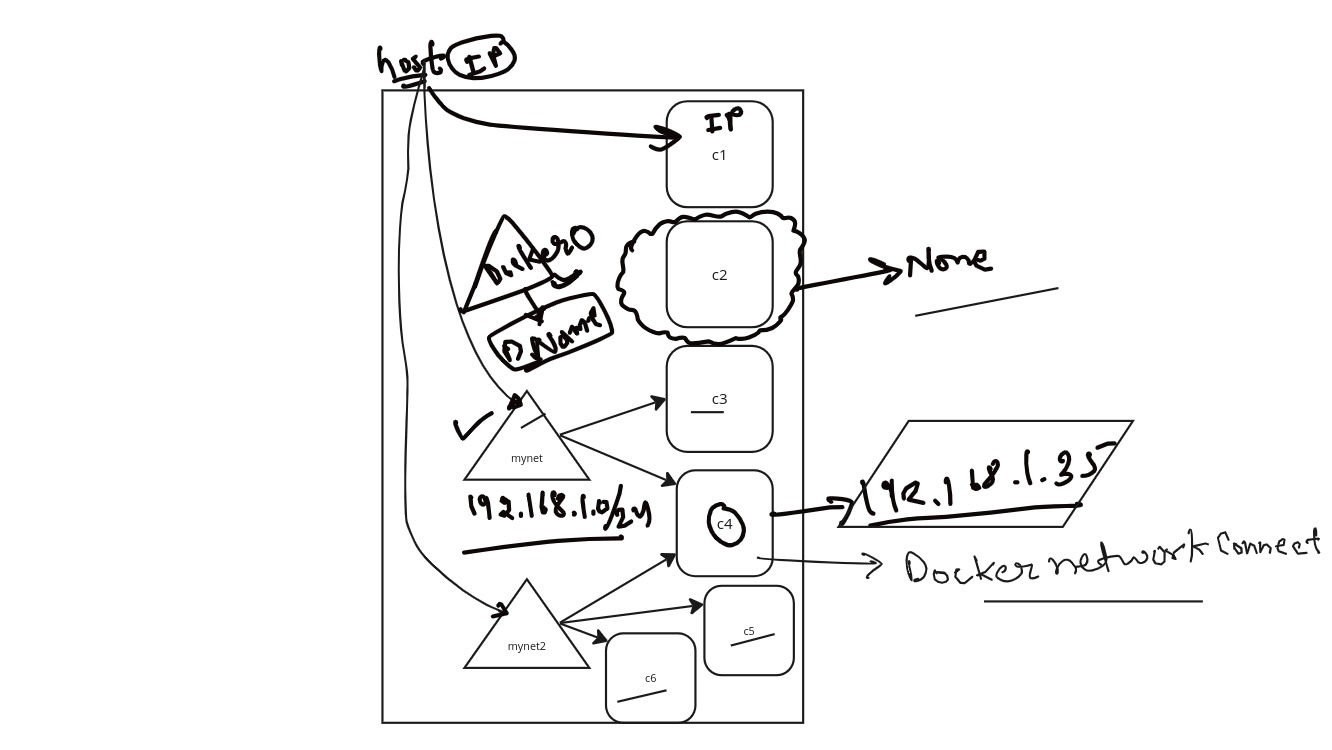 host IP
IP
c1
Docker0
c2
None
D Name
c3
mynet
192.168.1.0/24
192.168.1.35
c4
Docker network Connect
c5
mynet2
c6